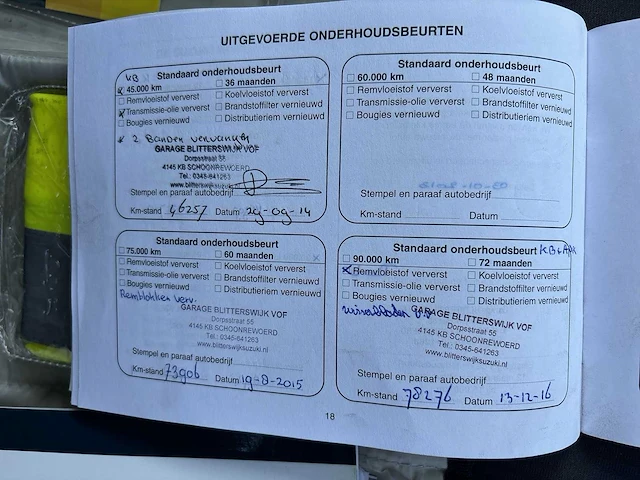 UITGEVOERDE ONDERHOUDSBEURTEN
KB
Standaard onderhoudsbeurt
45.000 km
36 maanden
Remvloeistof ververst
Koelvloeistof ververst
Transmissie-olie ververst
Brandstoffilter vernieuwd
Bougies vernieuwd
Distributieriem vernieuwd
2 Banden vervangen
GARAGE BLITTERSWIJK VOF
Dorpsstraat 55
4145 KB SCHOONREWOERD
Tel.: 0345-641263
www.blitterswijksuzuki.nl
Stempel en paraaf autobedrijf
Km-stand 46257 Datum 29-09-14
Standaard onderhoudsbeurt
60.000 km
48 maanden
Remvloeistof ververst
Koelvloeistof ververst
Transmissie-olie ververst
Brandstoffilter vernieuwd
Bougies vernieuwd
Distributieriem vernieuwd
Stempel en paraaf autobedrijf
Km-stand Datum
Standaard onderhoudsbeurt
75.000 km
60 maanden
Remvloeistof ververst
Koelvloeistof ververst
Transmissie-olie ververst
Brandstoffilter vernieuwd
Bougies vernieuwd
Distributieriem vernieuwd
Remblokken verv.
GARAGE BLITTERSWIJK VOF
Dorpsstraat 55
4145 KB SCHOONREWOERD
Tel.: 0345-641263
www.blitterswijksuzuki.nl
Stempel en paraaf autobedrijf
Km-stand 73906 Datum 19-8-2015
Standaard onderhoudsbeurt KB + APK
90.000 km
72 maanden
Remvloeistof ververst
Koelvloeistof ververst
Transmissie-olie ververst
Brandstoffilter vernieuwd
Bougies vernieuwd
Distributieriem vernieuwd
GARAGE BLITTERSWIJK VOF
Dorpsstraat 55
4145 KB SCHOONREWOERD
Tel.: 0345-641263
www.blitterswijksuzuki.nl
Stempel en paraaf autobedrijf
Km-stand 78276 Datum 13-12-16
18